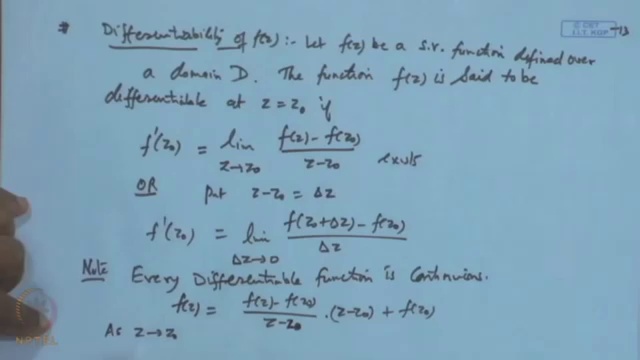 © CET
I.I.T. KGP
-13
# Differentiability of f(z) :- Let f(z) be a s.v. function defined over
a domain D. The function f(z) is said to be
differentiable at z = z₀ if
f'(z₀) = lim_{z→z₀} (f(z) - f(z₀))/(z - z₀) exists
OR put z - z₀ = Δz
f'(z₀) = lim_{Δz→0} (f(z₀+Δz) - f(z₀))/Δz
Note Every Differentiable function is continuous.
f(z) = (f(z) - f(z₀))/(z - z₀) · (z - z₀) + f(z₀)
As z→z₀
NPTEL